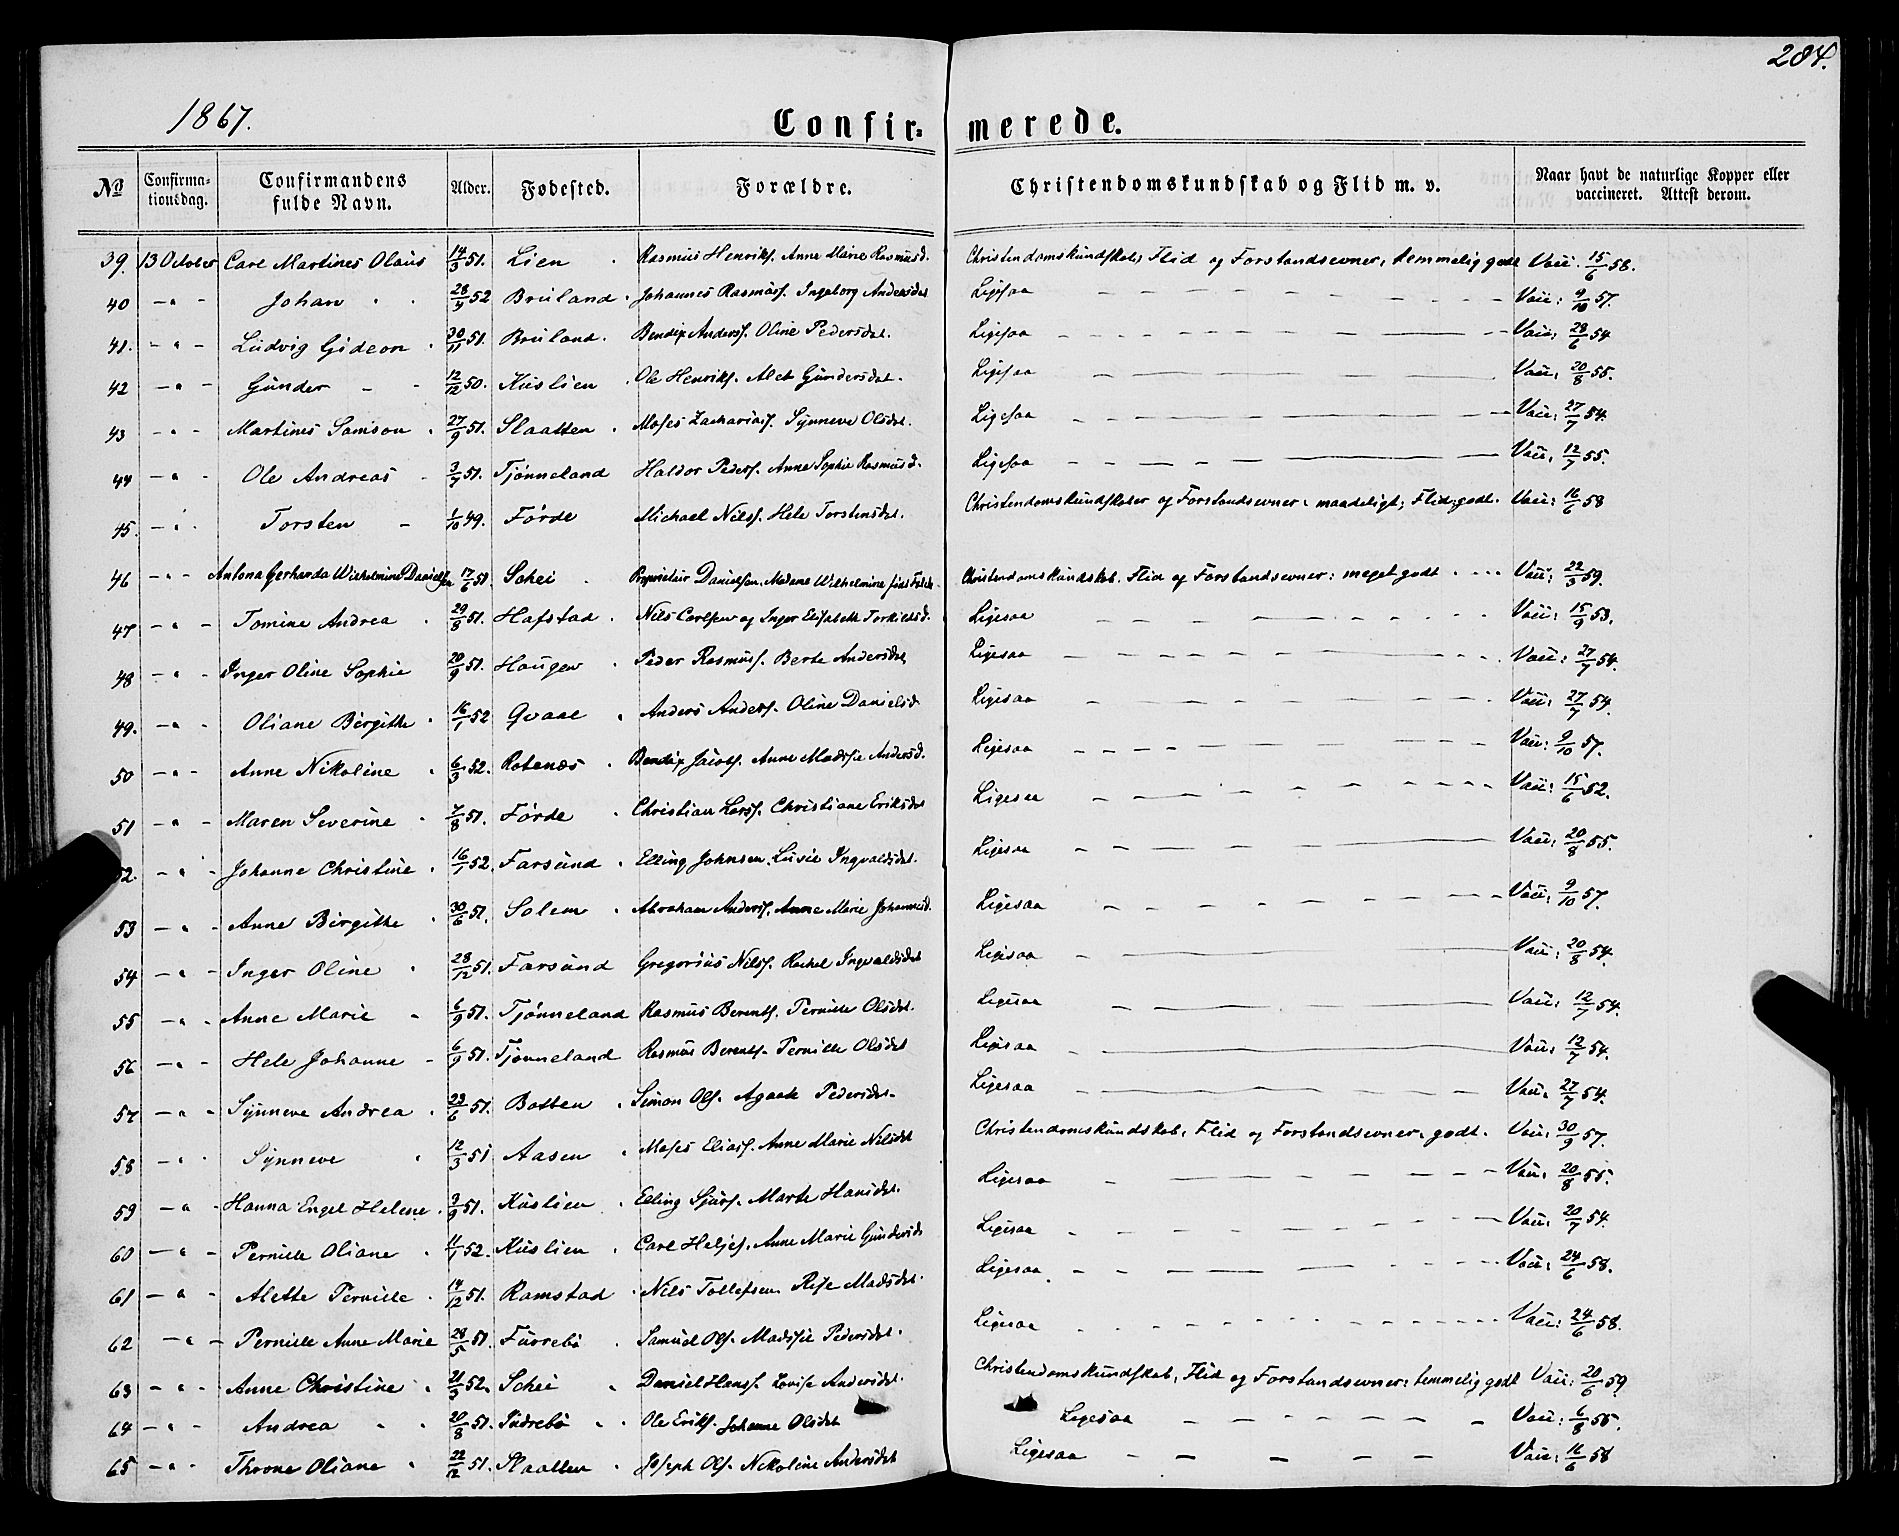 284.
1867.
Confir= merede.
No Confirmationsdag. Confirmandens fulde Navn. Alder. Fødested. Forældre. Christendomskundskab og Flid m. v. Naar havt de naturlige Kopper eller vaccineret. Attest derom.
39. 13 October Carl Martines Olaus 14/3 51. Lien Rasmus Henriks. Anne Marie Rasmusd. Christendomskundskab, Flid og Forstandsevner, temmelig godt Vacc. 15/6 58.
40 - " - Johan 28/4 52 Bruland Johannes Rasmuss. Ingeborg Andersdat Ligesaa Vacc: 9/10 57.
41. - " - Ludvig Gideon 20/11 51. Bruland. Bendix Anderss. Oline Pedersdat. Ligesaa Vacc: 28/6 54
42 - " - Gunder 12/12 50. Kuslien Ole Henriks. Alet Gundersdat. Ligesaa Vacc. 20/8 55.
43 - " - Martines Samson 27/9 51. Slaatten Moses Zachariass. Synneve Olsdat. Ligesaa Vacc: 27/7 54.
44 - " - Ole Andreas 3/7 51. Tjønneland Haldor Peders. Anne Sophie Rasmusd. Ligesaa Vacc. 12/7 55.
45. - " - Torsten 1/10 49. Førde Michael Nilss. Hele Torstensdat. Christendomskundskaber og Forstandsevner: maadeligt; Flid: godt. Vacc: 16/6 58
46 - " - Antona Gerharda Wilhelmine Danielsen 17/6 51. Schei Proprietair Danielsen, Madame Wilhelmine født Falch Christendomskundskab, Flid og Forstandsevner: meget godt Vacc: 22/3 59.
47 - " - Tomine Andrea 29/8 51. Hafstad Nils Carlsen og Inger Elisabeth Torkildsd. Ligesaa Vacc: 15/9 53.
48 - " - Inger Oline Sophie 20/9 51. Haugen Peder Rasmuss. Berte Andersdat Ligesaa Vacc: 27/7 54.
49. - " - Oliane Birgitte 16/1 52 Qvaal Anders Anders. Oline Danielsd. Ligesaa Vacc: 27/7 54.
50 - " - Anne Nikoline 6/3 52. Rotenæs Bendix Jacobs. Anne Madssie Andersd. Ligesaa Vacc: 9/10 57.
51 - " - Maren Severine 7/8 51. Førde Christian Larss. Christiane Eriksdat Ligesaa Vacc: 15/6 52.
52. - " - Johanne Christine 16/1 52. Farsund Elling Johnsen. Lusie Ingvaldsdat. Ligesaa Vacc: 20/8 55.
53 - " - Anne Birgithe 30/6 51. Solem Abraham Anders. Anne Marie Johannesd. Ligesaa Vacc: 9/10 57.
54 - " - Inger Oline 28/12 51. Farsund Gregorius Nilss. Rachel Ingvaldsdat Ligesaa Vacc: 20/8 54.
55 - " - Anne Marie 6/9 51. Tjønneland Rasmus Berents. Pernille Olsdat. Ligesaa Vacc: 12/7 54.
56 - " - Hele Johanne 6/9 51. Tjønneland Rasmus Berents. Pernille Olsdat Ligesaa Vacc: 12/7 54.
57 - " - Synneve Andrea 23/6 51. Botten Simon Ols. Agaate Pedersdat. Ligesaa Vacc. 27/7 54.
58 - " - Synneve 12/3 51 Aasen Moses Eliass. Anne Marie Nilsdat Christendomskundskab, Flid og Forstandsevner: godt. Vacc: 30/9 57.
59 - " - Hanna Engel Helene 9/9 51. Kuslien Elling Sjurs. Marte Hansdat. Ligesaa Vacc: 20/8 55.
60 - " - Pernille Oliane 11/1 52. Kuslien Carl Heljes. Anne Marie Gundersd. Ligesaa Vacc: 20/7 54.
61 - " - Alette Pernille 14/12 51. Ramstad Nils Tollefsen Madsdat. Ligesaa Vacc: 24/6 58.
62 - " - Pernille Anne Marie 28/5 51. Furrebø Samuel Ols. Madssie Pedersdat. Ligesaa Vacc: 24/6 58.
63 - " - Anne Christine 21/3 52. Schei Daniel Hanss. Lovise Andersdat. Christendomskundskab, Flid og Forstandsevner: temmelig godt Vacc: 20/6 59
64 - " - Andrea 20/8 51. Indrebø Ole Eriks. Johanne Olsdat Ligesaa Vacc: 6/8 55.
65 - " - Throne Oliane 22/12 51. Slaatten Joseph Ols. Nikoline Andersdat Ligesaa Vacc: 16/6 58